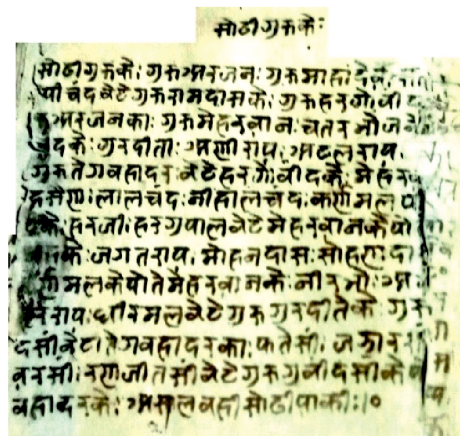 सोढीगुरुके:
सोढीगुरुके: गुरुअरजन: गुरुमाहांदेव
पीथीचंदबेटेगुरुरामदासके: गुरुहरगोवींद
गुरुअरजनका: गुरुमेहरवान: चतरभोज
चंदके: गुरदीता: अणीराय: अटलराय
गुरुतेगवहादर: बेटेहरगोवींदके: मेहरव
लालचंद: नीहालचंद: करणमल
के: हरजी: हरगुपालबेटेमेहरवानकेपो
के: जगतराय: मोहनदास: सोहण: दा
मलकेपोतेमेहरवानके:
राय: धीरमलबेटेगुरुगुरदीतेके: गुरु
दसींबेटातेगवहादरका: फतेसीं:
वरसीं: रणजीतसींबेटेगुरुगुवींदसींकेपो
वहादरके: असलवहीसोढीयाकी: १०